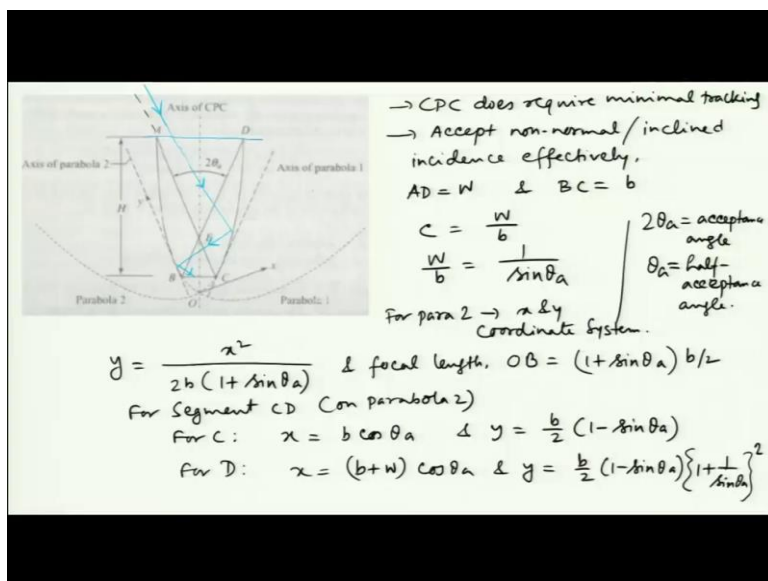 Axis of CPC
M
D
Axis of parabola 2
2θa
Axis of parabola 1
H
y
x
B
C
O
Parabola 2
Parabola 1
→ CPC does require minimal tracking
→ Accept non-normal/inclined
incidence effectively.
AD = W & BC = b
C = W/b
W/b = 1/sinθa
2θa = acceptance
angle
θa = half-
acceptance
angle.
For para 2 → x & y
Coordinate System.
y = x²/2b(1+sinθa) & focal length, OB = (1+sinθa) b/2
For Segment CD (on parabola 2)
For C: x = b cosθa & y = b/2 (1-sinθa)
For D: x = (b+W) cosθa & y = b/2 (1-sinθa){1+1/sinθa}²